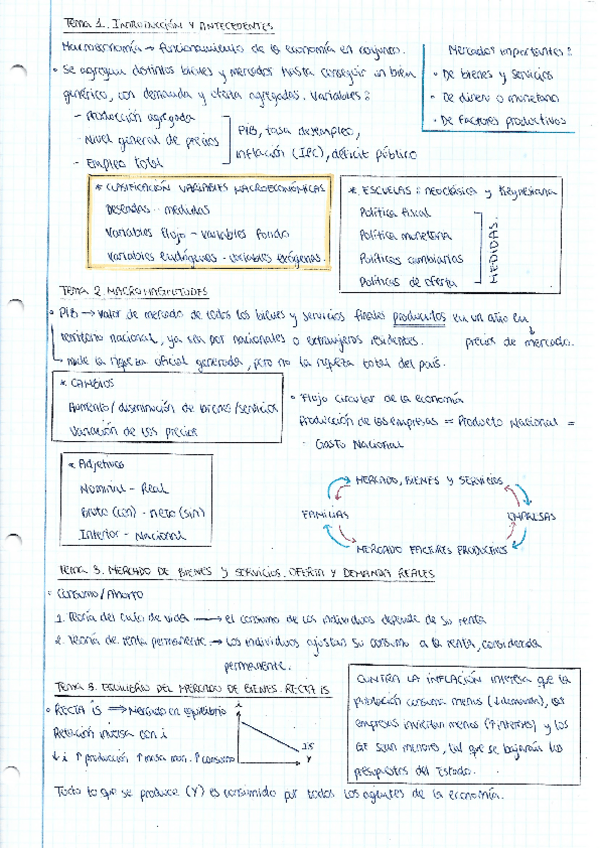 TEMA 1. INTRODUCCIÓN Y ANTECEDENTES
Macroeconomía → funcionamiento de la economía en conjunto.
• Se agregan distintos bienes y mercados hasta conseguir un bien
genérico, con demanda y oferta agregadas. Variables:
- Producción agregada
- Nivel general de precios
- Empleo total
PIB, tasa desempleo,
inflación (IPC), déficit público
Mercados importantes:
• De bienes y servicios
• De dinero o monetario
• De factores productivos
* CLASIFICACIÓN VARIABLES MACROECONÓMICAS
Deseadas - medidas
Variables flujo - variables fondo
Variables endógenas - variables exógenas.
* ESCUELAS: neoclásica y keynesiana
Política fiscal
Política monetaria
Políticas cambiarias
Políticas de oferta
MEDIDAS.
TEMA 2 MACROMAGNITUDES
• PIB → valor de mercado de todos los bienes y servicios finales producidos en un año en
territorio nacional, ya sea por nacionales o extranjeros residentes. precios de mercado.
→ mide la riqueza oficial generada, pero no la riqueza total del país.
* CAMBIOS
Aumento/disminución de bienes/servicios
Variación de los precios
• Flujo circular de la economía
Producción de las empresas = Producto Nacional =
Gasto Nacional
* Adjetivos
Nominal - Real
Bruto (con) - neto (sin)
Interior - Nacional
MERCADO, BIENES Y SERVICIOS
FAMILIAS
EMPRESAS
MERCADO FACTORES PRODUCTIVOS
TEMA 3. MERCADO DE BIENES Y SERVICIOS. OFERTA Y DEMANDA REALES
• Consumo/Ahorro
1. Teoría del ciclo de vida → el consumo de los individuos depende de su renta
2. Teoría de renta permanente → Los individuos ajustan su consumo a la renta, considerada
permanente.
TEMA 3. EQUILIBRIO DEL MERCADO DE BIENES. RECTA IS
• RECTA IS ⇒ Mercado en equilibrio
Relación inversa con i
↓i ↑producción ↑masa mon. ↑consumo
i
IS
Y
CONTRA LA INFLACIÓN interesa que la
población consuma menos (↓demanda), las
empresas inviertan menos (↑intereses) y los
GP sean menores, tal que se bajarán los
presupuestos del Estado.
Todo lo que se produce (Y) es consumido por todos los agentes de la economía.